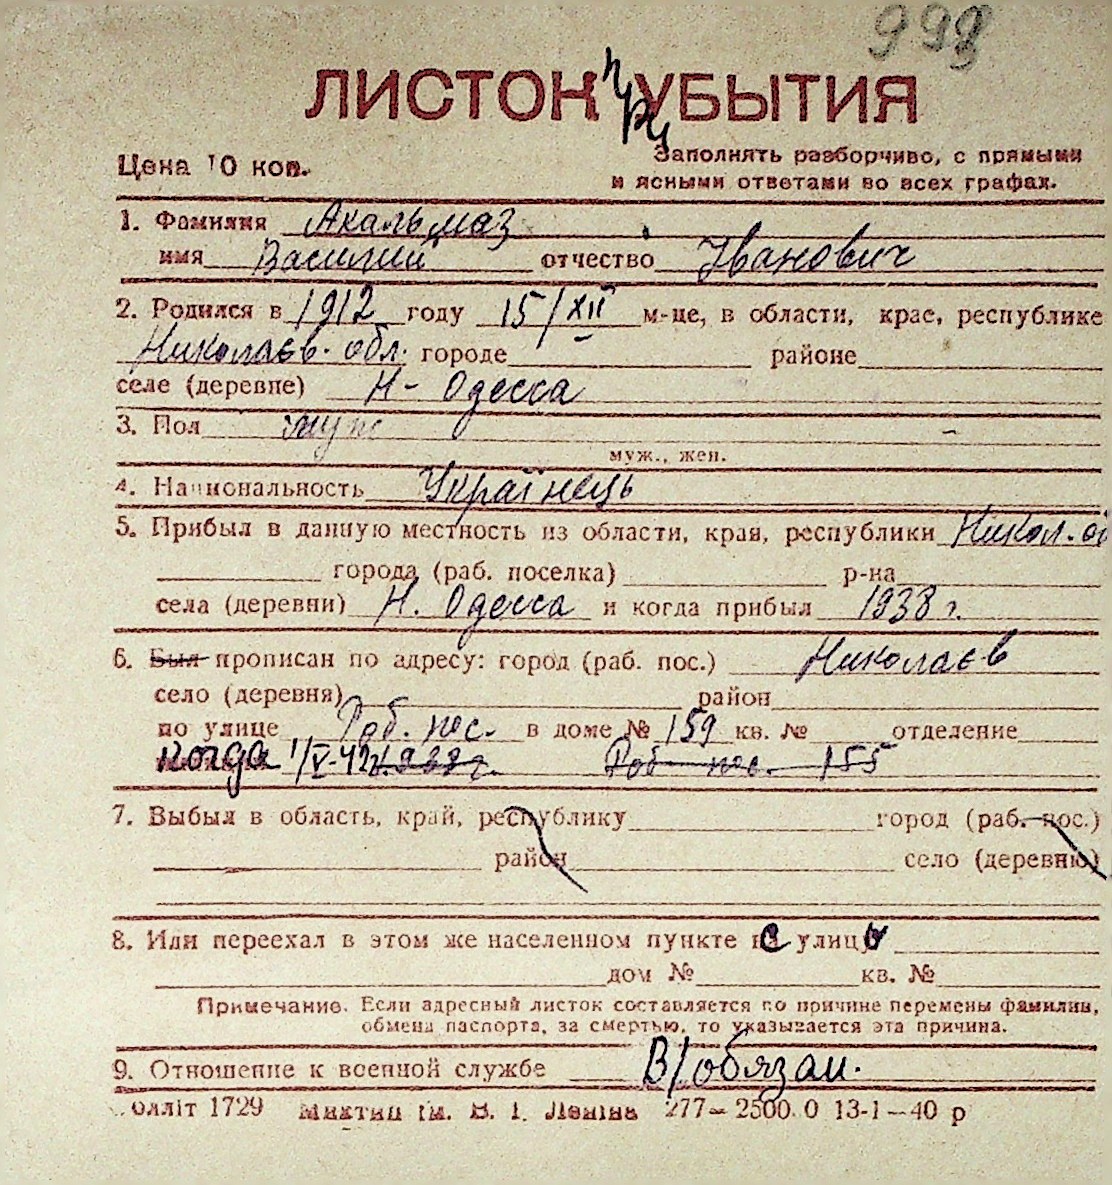 998
ЛИСТОК при УБЫТИЯ
Цена 10 коп.
Заполнять разборчиво, с прямыми
и ясными ответами во всех графах.
1. Фамилия Акальмаз
имя Василий отчество Иванович
2. Родился в 1912 году 15/XII м-це, в области, крае, республике
Николаєв. обл. городе районе
селе (деревне) Н-Одесса
3. Пол муж
муж., жен.
4. Национальность Українець
5. Прибыл в данную местность из области, края, республики Никол. об
города (раб. поселка) р-на
села (деревни) Н. Одесса и когда прибыл 1938 г.
6. Был прописан по адресу: город (раб. пос.) Николаєв
село (деревня) район
по улице Роб. пос. в доме № 159 кв. № отделение
когда 1/V-42 Роб. пос. 155
7. Выбыл в область, край, республику город (раб. пос.)
район село (деревню)
8. Или переехал в этом же населенном пункте с улицы
дом № кв. №
Примечание. Если адресный листок составляется по причине перемены фамилии,
обмена паспорта, за смертью, то указывается эта причина.
9. Отношение к военной службе В/обязан.
олліт 1729 ім. В. І. Леніна 277—2500.0 13-1—40 р